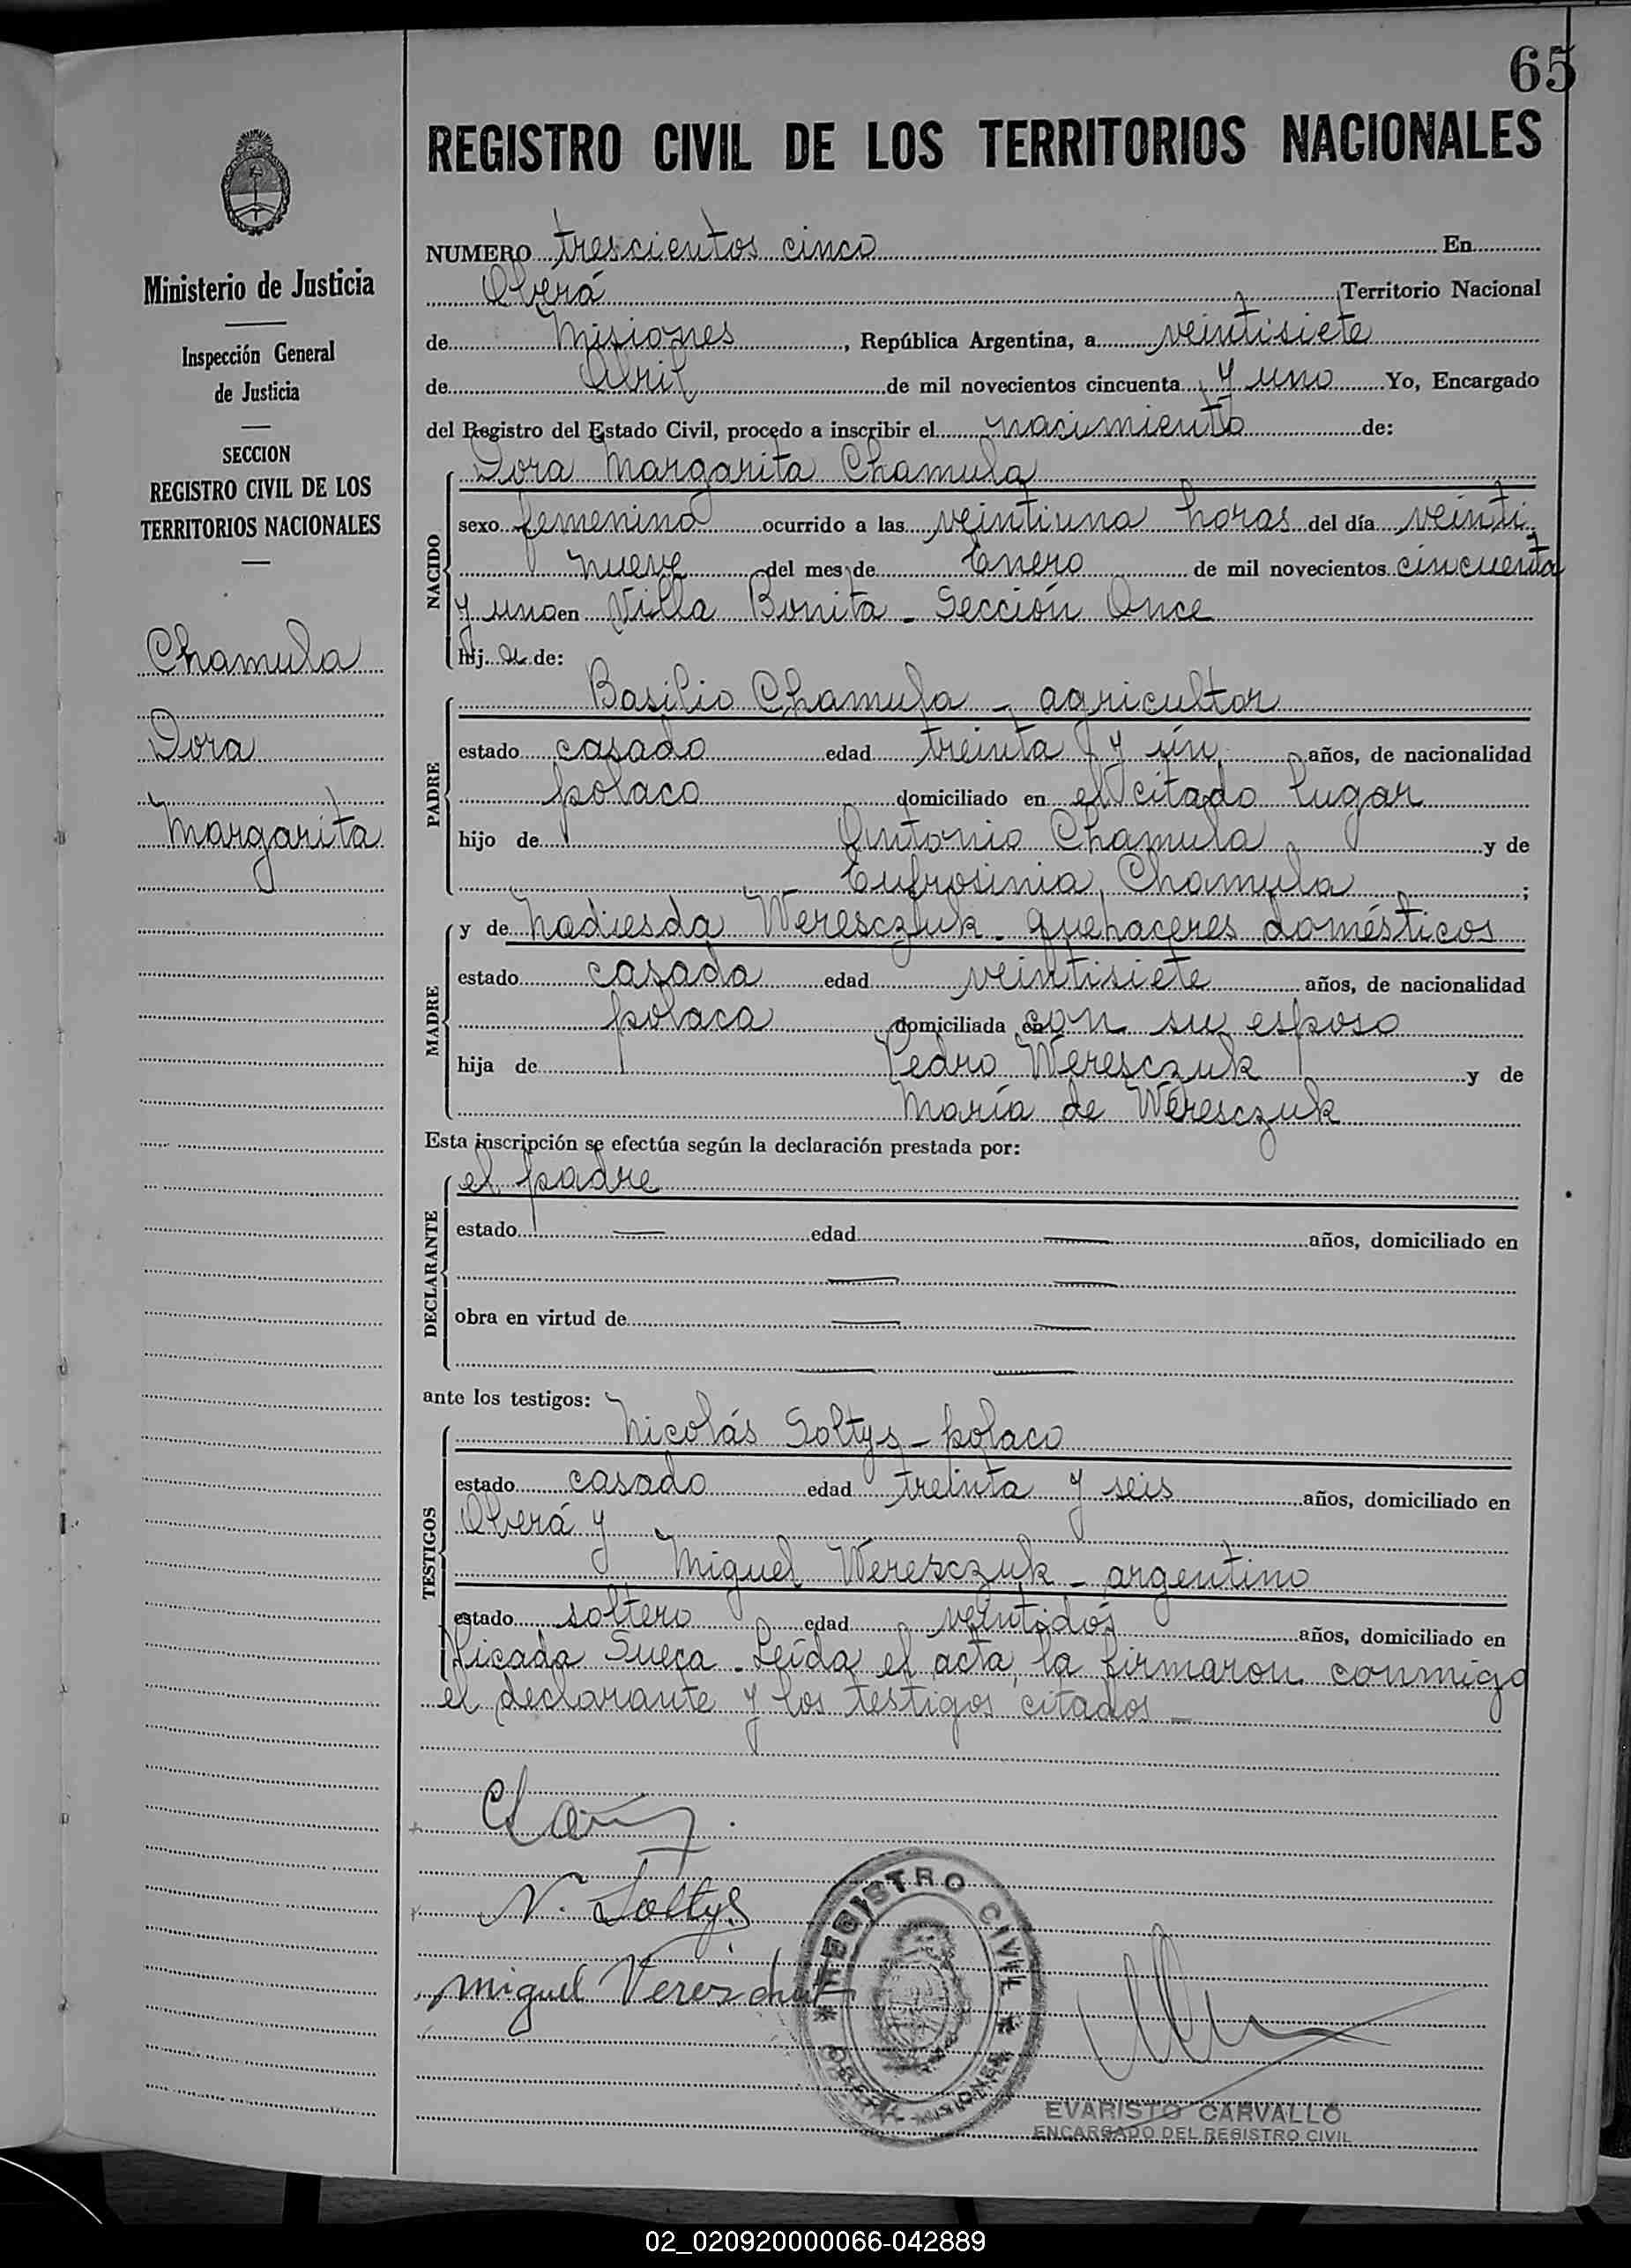 65
REGISTRO CIVIL DE LOS TERRITORIOS NACIONALES
Ministerio de Justicia
Inspección General
de Justicia
SECCION
REGISTRO CIVIL DE LOS
TERRITORIOS NACIONALES
Chamula
Dora
Margarita
NUMERO trescientos cinco En
Oberá Territorio Nacional
de Misiones, República Argentina, a veintisiete
de Abril de mil novecientos cincuenta y uno Yo, Encargado
del Registro del Estado Civil, procedo a inscribir el nacimiento de:
NACIDO
Dora Margarita Chamula
sexo femenino ocurrido a las veintiuna horas del día veinti
nueve del mes de Enero de mil novecientos cincuenta
y uno en Villa Bonita - Sección Once
hij a de:
PADRE
Basilio Chamula - agricultor
estado casado edad treinta y ún años, de nacionalidad
polaco domiciliado en el citado lugar
hijo de Antonio Chamula y de
Eufrosinia Chamula ;
MADRE
y de Nadiesda Weresczuk - quehaceres domésticos
estado casada edad veintisiete años, de nacionalidad
polaca domiciliada en con su esposo
hija de Pedro Weresczuk y de
María de Weresczuk
Esta inscripción se efectúa según la declaración prestada por:
DECLARANTE
el padre
estado — edad — años, domiciliado en
— —
obra en virtud de — —
— —
ante los testigos:
TESTIGOS
Nicolás Soltys - polaco
estado casado edad treinta y seis años, domiciliado en
Oberá y
Miguel Weresczuk - argentino
estado soltero edad veintidós años, domiciliado en
Picada Sueca. Leída el acta, la firmaron conmigo
el declarante y los testigos citados -
N. Soltys
Miguel
REGISTRO CIVIL
OBERA - MISIONES
EVARISTO CARVALLO
ENCARGADO DEL REGISTRO CIVIL
02_020920000066-042889